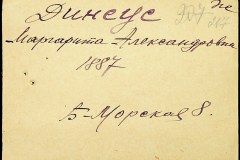 Динсус
Маргарита Александровна
1887
Б-Морская 8.